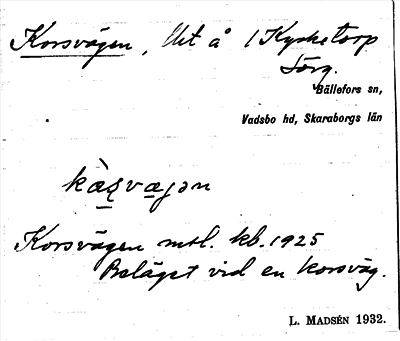 Korsvägen, Ut å 1 Kyrketorp
Sörg.
Bällefors sn,
Vadsbo hd, Skaraborgs län
Korsvägen mtl. kb. 1925
Beläget vid en korsväg.
L. MADSÉN 1932.